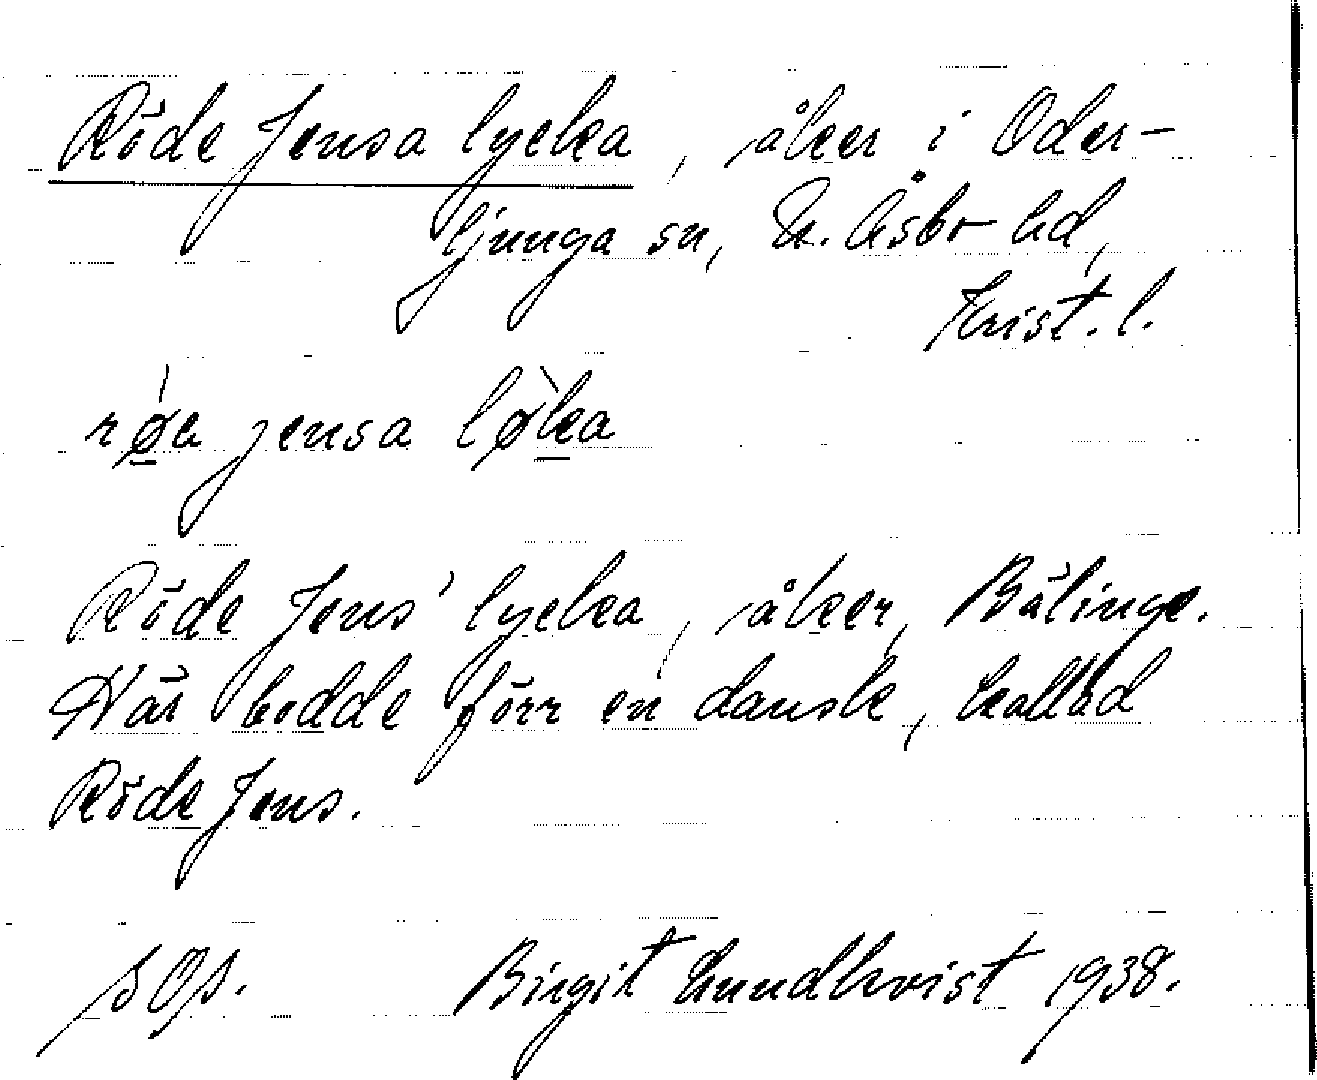 Röde Jensa lycka, åker i Oder-
ljunga sn, N. Åsbo hd,
Krist. l.
røa jensa løka
Röde Jens' lycka, åker, Bälinge.
Här bodde förr en dansk, kallad
Röde Jens.
Birgit Lundkvist 1938.